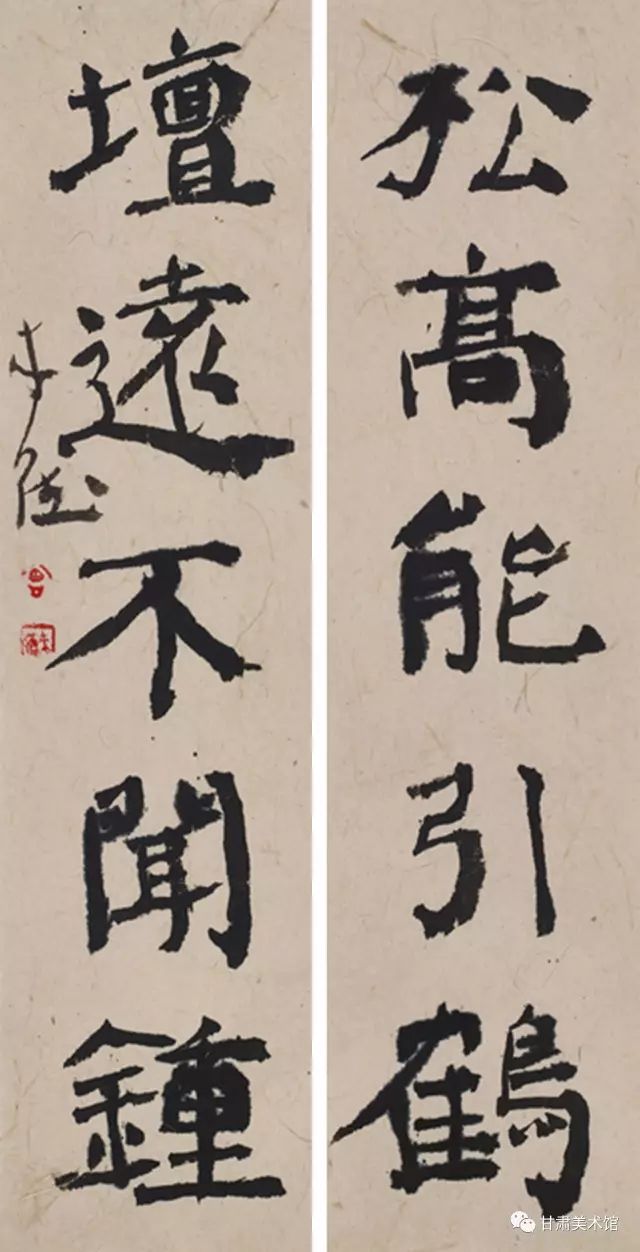 松高能引鶴
壇遠不聞鍾
甘肃美术馆